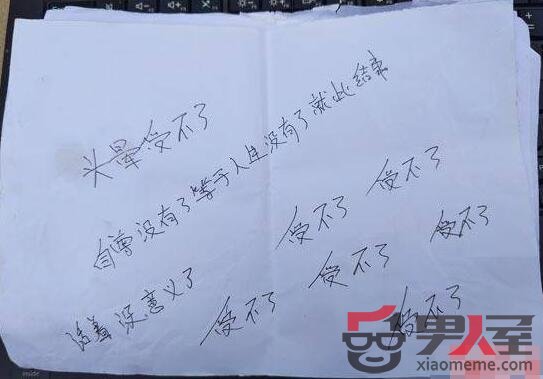 头晕受不了
自尊没有了等于人生没有了就此结束
活着没意义了
受不了
受不了
受不了
受不了
受不了
受不了
男人屋
xiaomeme.com